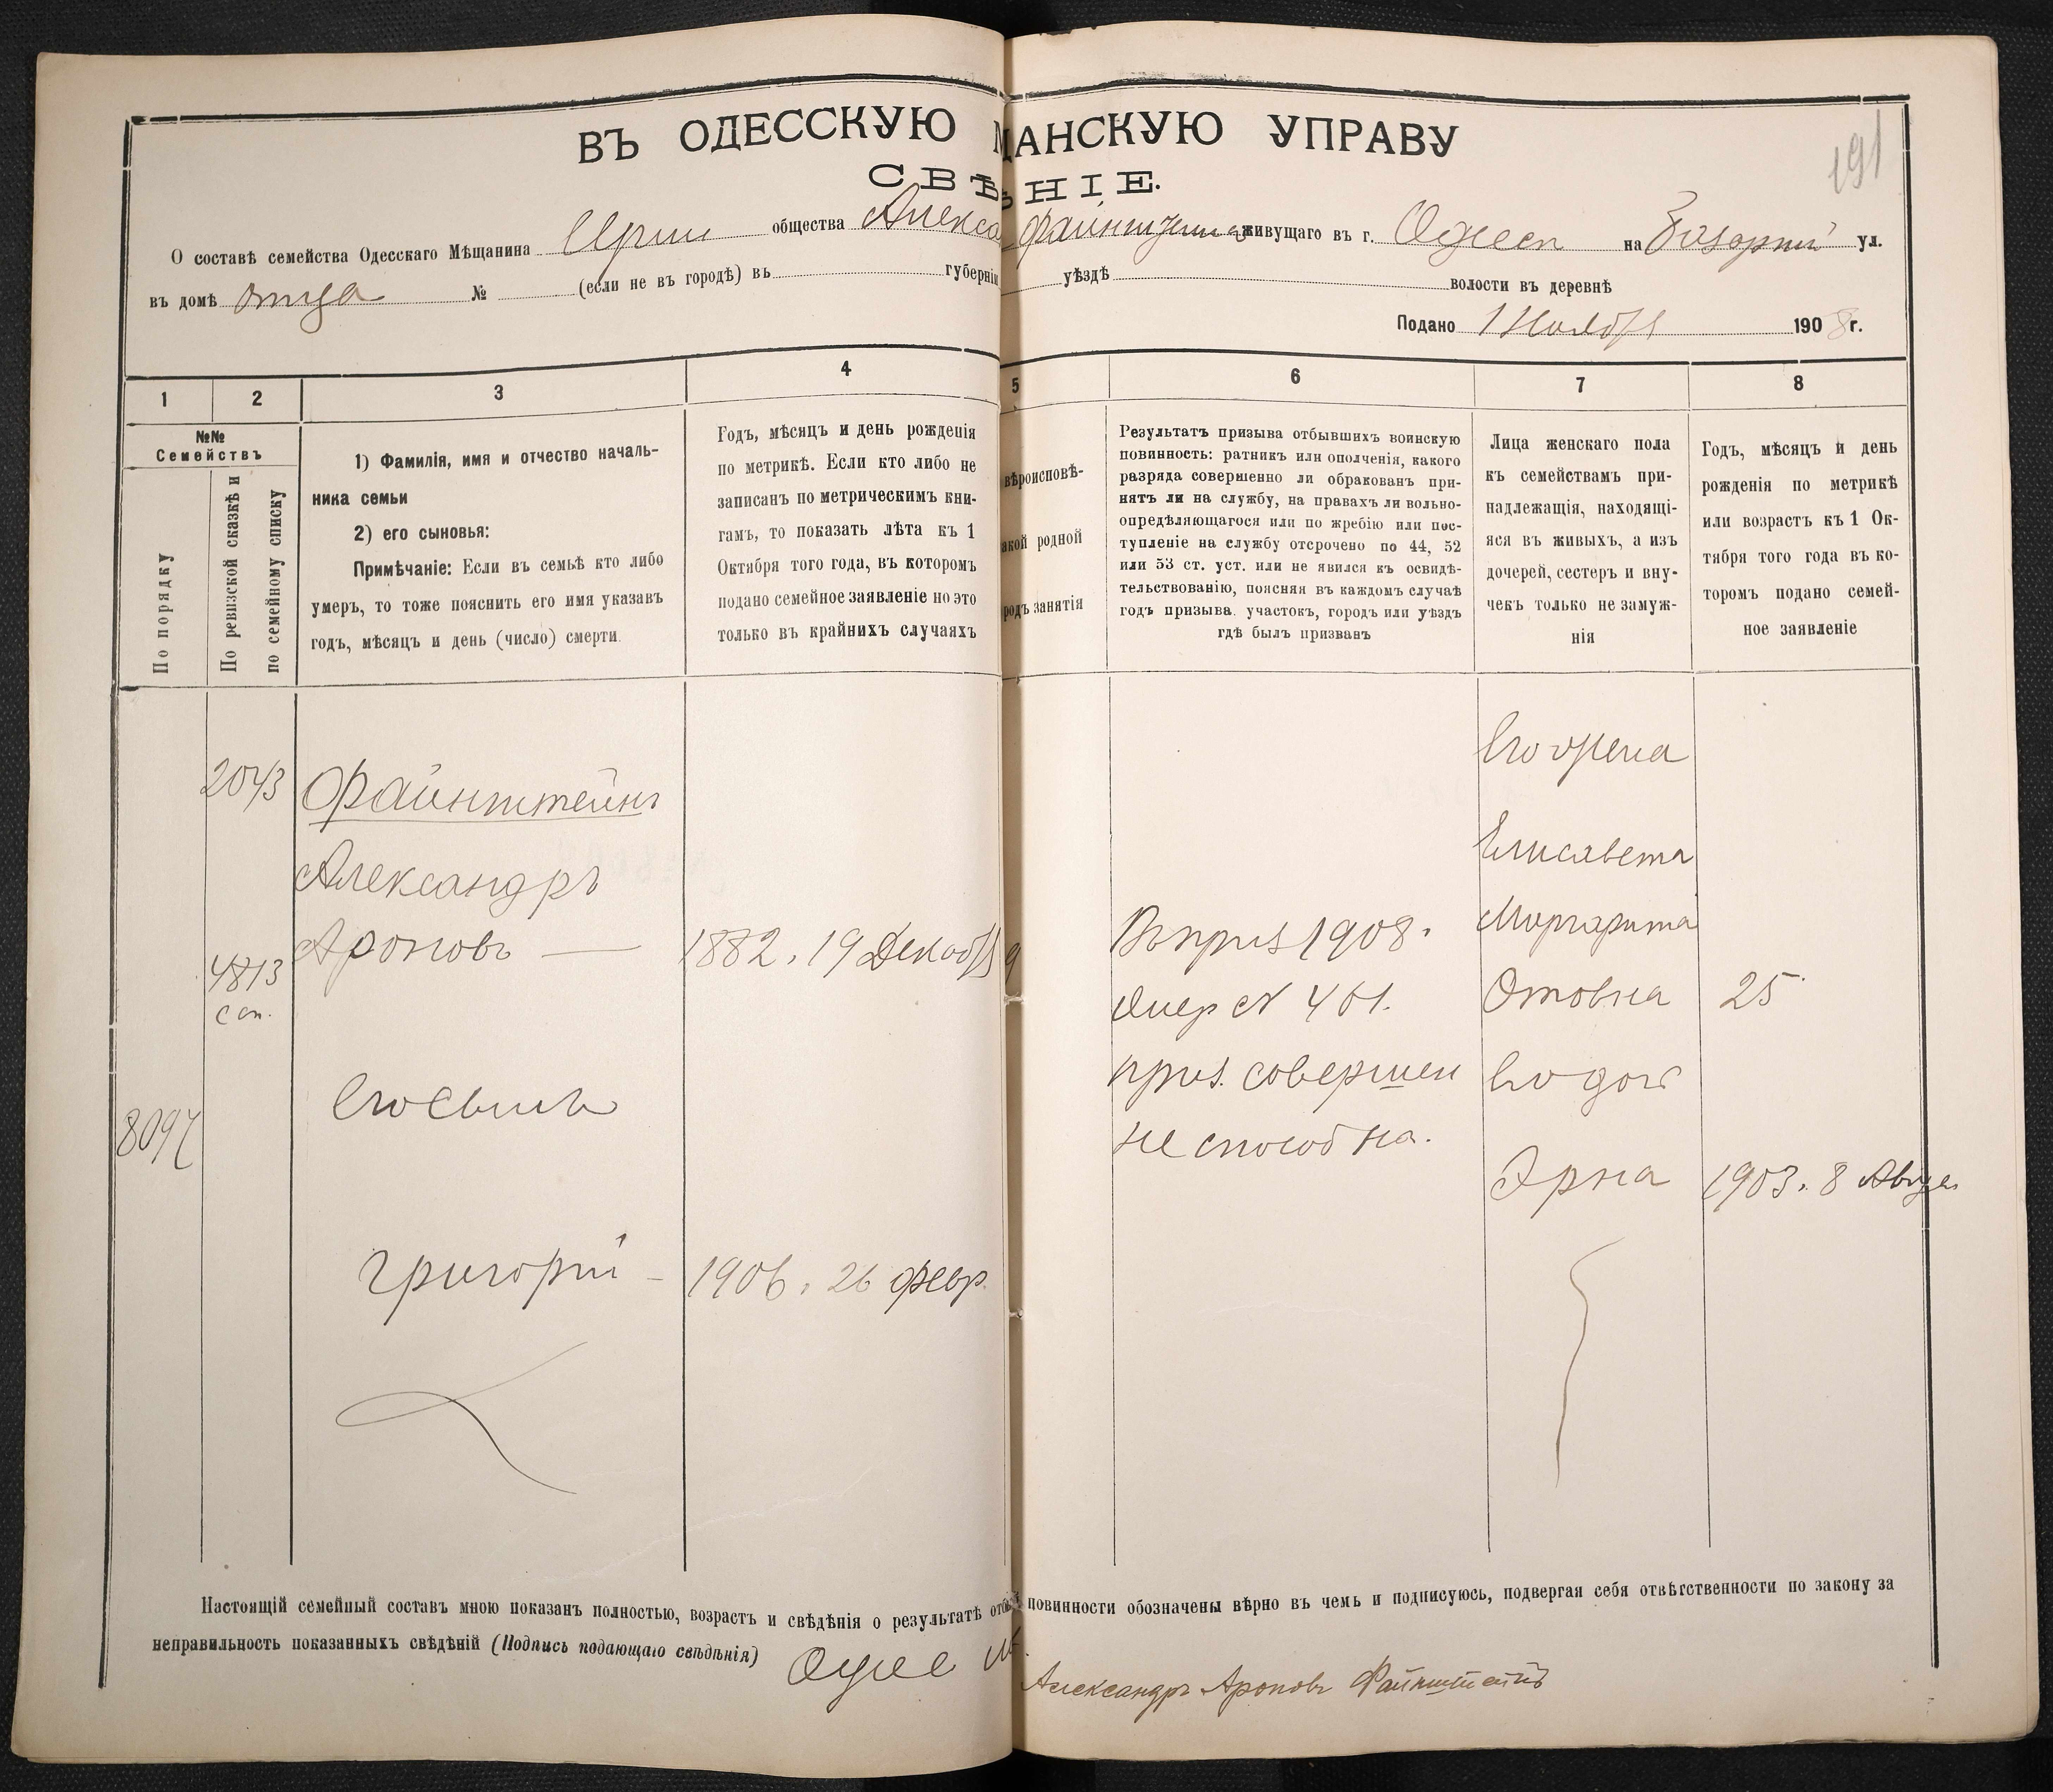 ВЪ ОДЕССКУЮ ЩАНСКУЮ УПРАВУ
СВѢ НІЕ.
191
О составѣ семейства Одесскаго Мѣщанина общества Алекса Файнштейна живущаго въ г. Одесса на Базарной ул.
въ домѣ отца № (если не въ городѣ) въ губерніи уѣздѣ волости въ деревнѣ
Подано 1 Ноября 1908 г.
1 2 3 4 5 6 7 8
№№
Семействъ
По порядку
По ревизской сказкѣ и
по семейному списку
1) Фамилія, имя и отчество началь-
ника семьи
2) его сыновья:
Примѣчаніе: Если въ семьѣ кто либо
умеръ, то тоже пояснить его имя указавъ
годъ, мѣсяцъ и день (число) смерти.
Годъ, мѣсяцъ и день рожденія
по метрикѣ. Если кто либо не
записанъ по метрическимъ кни-
гамъ, то показать лѣта къ 1
Октября того года, въ которомъ
подано семейное заявленіе но это
только въ крайнихъ случаяхъ
вѣроисповѣ-
акой родной
родъ занятія
Результатъ призыва отбывшихъ воинскую
повинность: ратникъ или ополченія, какого
разряда совершенно ли обракованъ при-
нятъ ли на службу, на правахъ ли вольно-
опредѣляющагося или по жребію или пос-
тупленіе на службу отсрочено по 44, 52
или 53 ст. уст. или не явился къ освидѣ-
тельствованію, поясняя въ каждомъ случаѣ
годъ призыва, участокъ, городъ или уѣздъ
гдѣ былъ призванъ
Лица женскаго пола
къ семействамъ при-
надлежащія, находящі-
яся въ живыхъ, а изъ
дочерей, сестеръ и вну-
чекъ только не замуж-
нія
Годъ, мѣсяцъ и день
рожденія по метрикѣ
или возрастъ къ 1 Ок-
тября того года въ ко-
торомъ подано семей-
ное заявленіе
2043
Файнштейнъ
Александръ
Ароновъ — 1882. 19 Декабря
4813
сп.
8097
Его Сынъ
Григорій — 1906. 26 февр.
Въ приз 1908.
жер № 401.
приз. совершен
не способна.
Его жена
Елисавета
Маргарита
Отовна 25
Его доч
Эрна 1903. 8 Август
Настоящій семейный составъ мною показанъ полностью, возрастъ и свѣдѣнія о результатѣ отб повинности обозначены вѣрно въ чемъ и подписуюсь, подвергая себя отвѣтственности по закону за
неправильность показанныхъ свѣдѣній (Подпись подающаго свѣдѣнія) Одес М.
Александръ Ароновъ Файнштейнъ